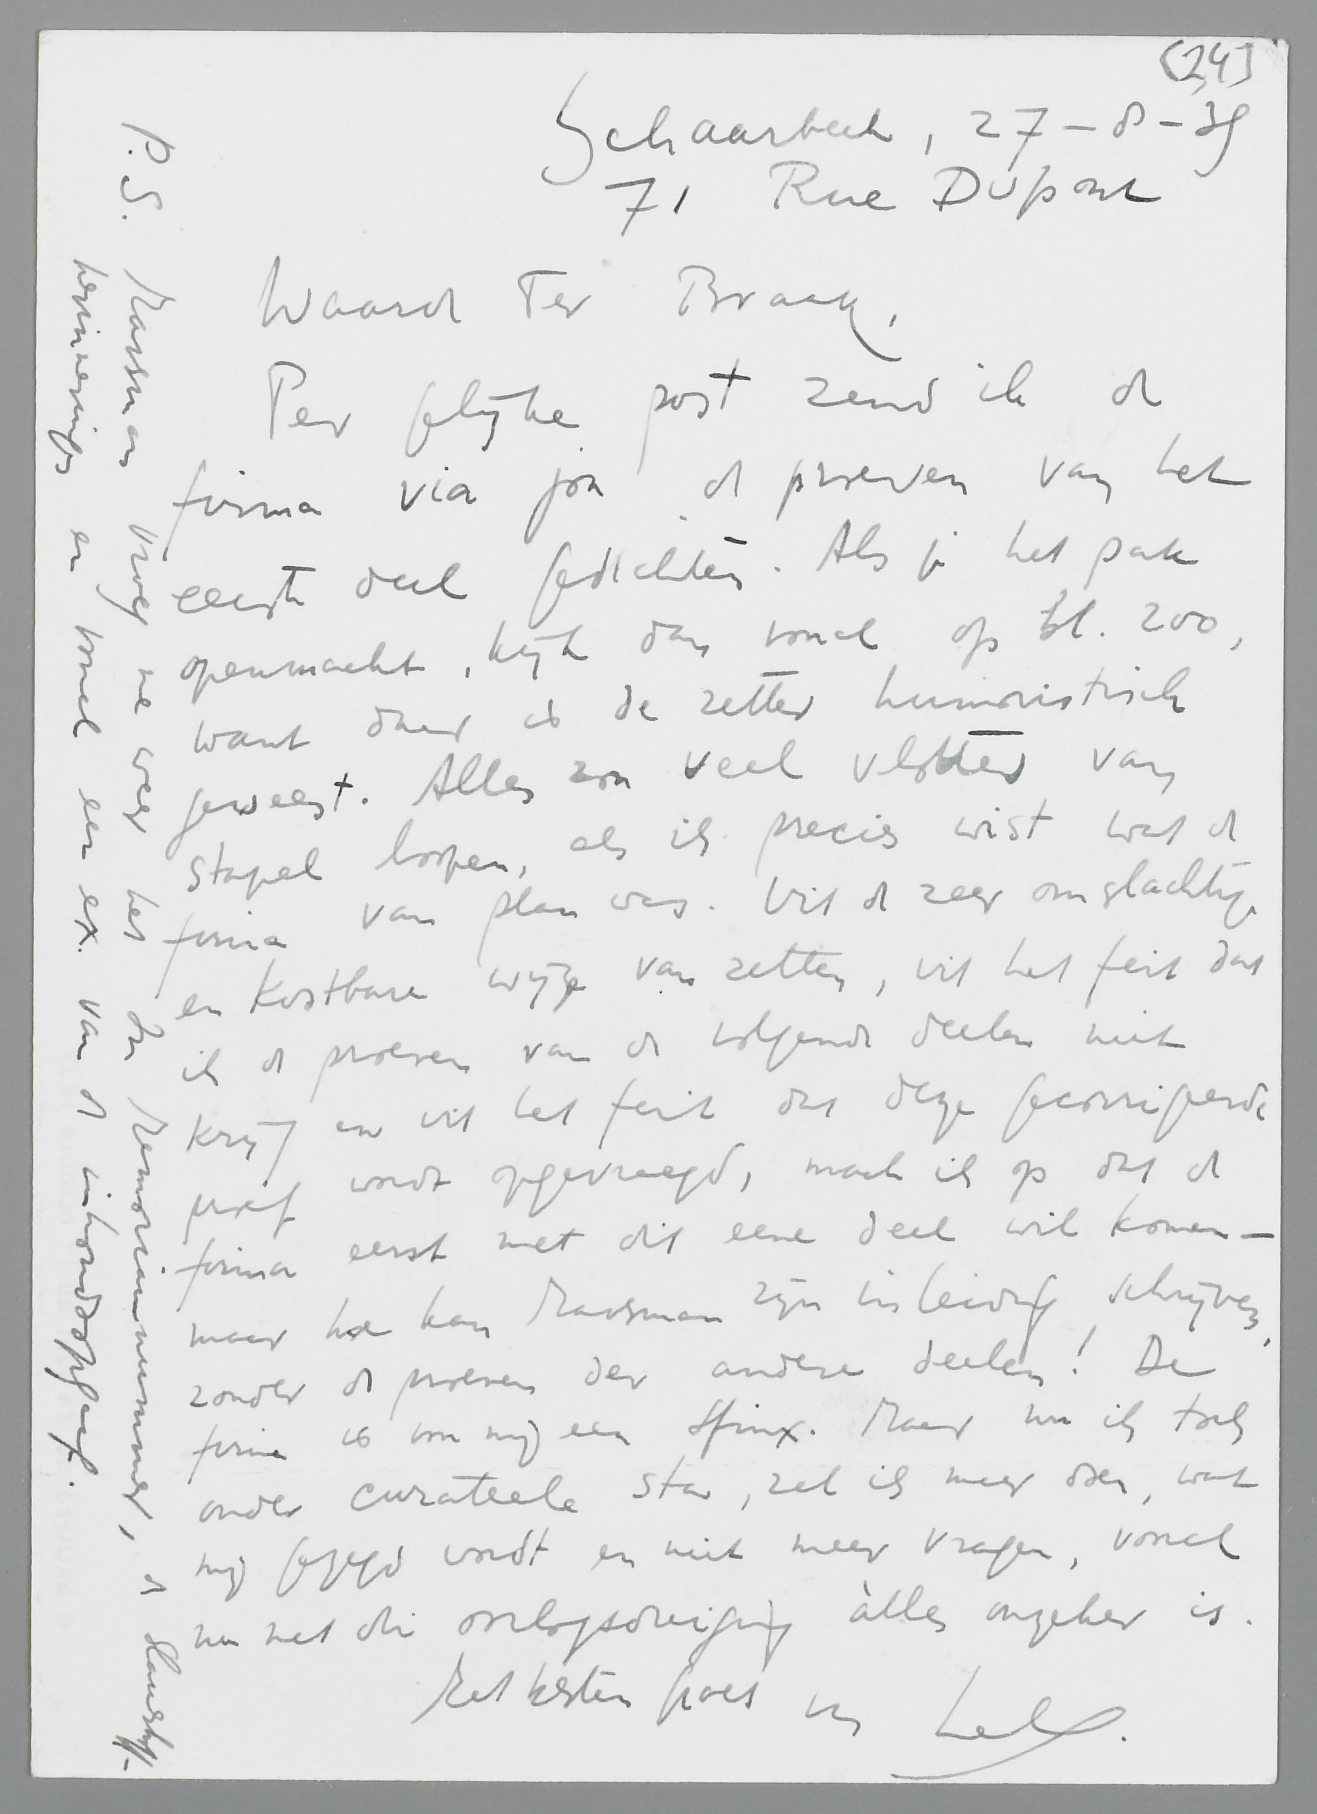 (24)
Schaarbeek, 27-8-39
71 Rue Dupont
Waarde Ter Braak,
Per gelijke post zend ik de
firma via jou de proeven van het
eerste deel gedichten. Als je het pak
openmaakt, kijk dan vooral op bl. 200,
want daar is de zetter humoristisch
geweest. Alles zou veel vlotter van
stapel loopen, als ik precies wist wat de
firma van plan was. Uit de zeer omslachtige
en kostbare wijze van zetten, uit het feit dat
ik de proeven van de volgende deelen niet
krijg en uit het feit dat deze gecorrigeerde
proef wordt opgevraagd, maak ik op dat de
firma eerst met dit eene deel wil komen –
maar hoe kan Marsman zijn inleiding schrijven,
zonder de proeven der andere deelen! De
firma is voor mij een sfinx. Maar nu ik toch
onder curateele sta, zal ik maar doen, wat
mij gezegd wordt en niet meer vragen, vooral
nu met die oorlogsdreiging àlles onzeker is.
Met besten groet van
P.S. Marsman vroeg me weer het In Memoriamnummer, de Slauerhoff-
herinnerings en vooral een ex. van de inhoudsopgaaf.